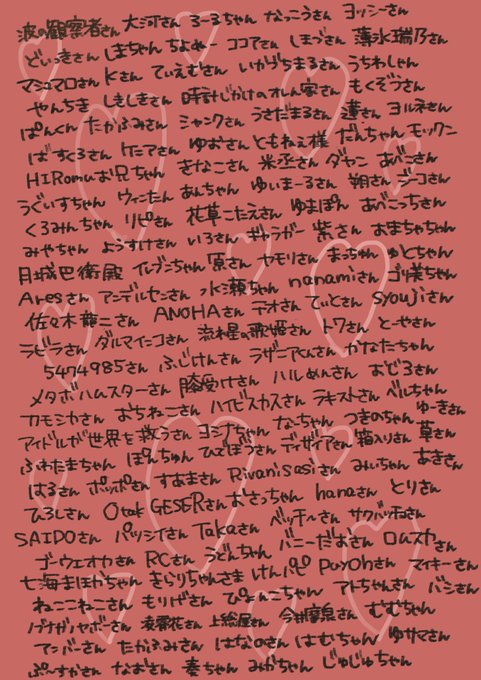 波の観察者さん 大河さん るーるちゃん なっこうさん ヨッシーさん
どいっきさん しまちゃん ちよぬー ココアさん しもづさん 薄氷瑞乃さん
マシュマロさん Kさん てぃえむさん いかづちまるさん うちわしゃん
やんちき しきしきさん 時計じかけのオレん家さん もくぞうさん
ぱんくん たかふみさん シャンクさん うさだまるさん 蓮さん ヨルネさん
ばすくろさん ケニアさん ゆおさん ともねぇ様 だんちゃん モックン
HIRomuお兄ちゃん きなこさん 米丞さん ダヤン あべこさん
うぐいすちゃん ウィンたん あんちゃん ゆいまーるさん 朔さん ジーコさん
くろみんちゃん リピさん 花草こたえさん ゆまぽん あべこっちさん
みやちゃん ようすけさん いろさん ギャラガー 紫さん おまちゃちゃん
月城巴衛殿 イレブンちゃん 原さん ヤモリさん まっちゃん ゆとちゃん
Aresさん アンデルセンさん 水瀬ちゃん nanamiさん ゴリ美ちゃん
佐々木龍二さん ANOHAさん テオさん ていとさん syoujiさん
ラビラさん ダルマインコさん 流れ星の歌姫さん トワさん とーやさん
5404985さん ふじけんさん ラザニアくんさん かなたちゃん
メタボハムスターさん 膝受けさん ハルめんさん おどろさん
カモシカさん おちねこさん ハイビスカスさん ラキストさん ベルちゃん
アイドルが世界を救うさん ヨシナちゃん なーちゃん つまのちゃん ゆーきさん
ふわたまちゃん ぽんちゅん ひでぼうさん ディザイアさん 箱入りさん 草さん
はるさん ポッポさん すあまさん Rivanisasiさん みぃちゃん あききさん
ひろしさん Otak GESERさん おさっちゃん hanaさん とりさん
SAIPOさん パッシィさん Takaさん ベッチルさん サクバッチョさん
ゴーウェオカさん RCさん うどんちゃん バニーだおさん ロムスカさん
七海まほかちゃん きらりちゃんさま けんパピ puyohさん マイキーさん
ねここねこさん もりげさん ぴょーんこちゃん アトちゃんさん バシさん
ノブナガッヤボーさん 凌霄花さん 上絵屋さん 今井摩臭さん むむちゃん
アンバーさん たかふみさん はなのさん はむいちゃん ゆサマさん
ぷ〜すかさん なおさん 奏ちゃん みかちゃん じゅじゅちゃん